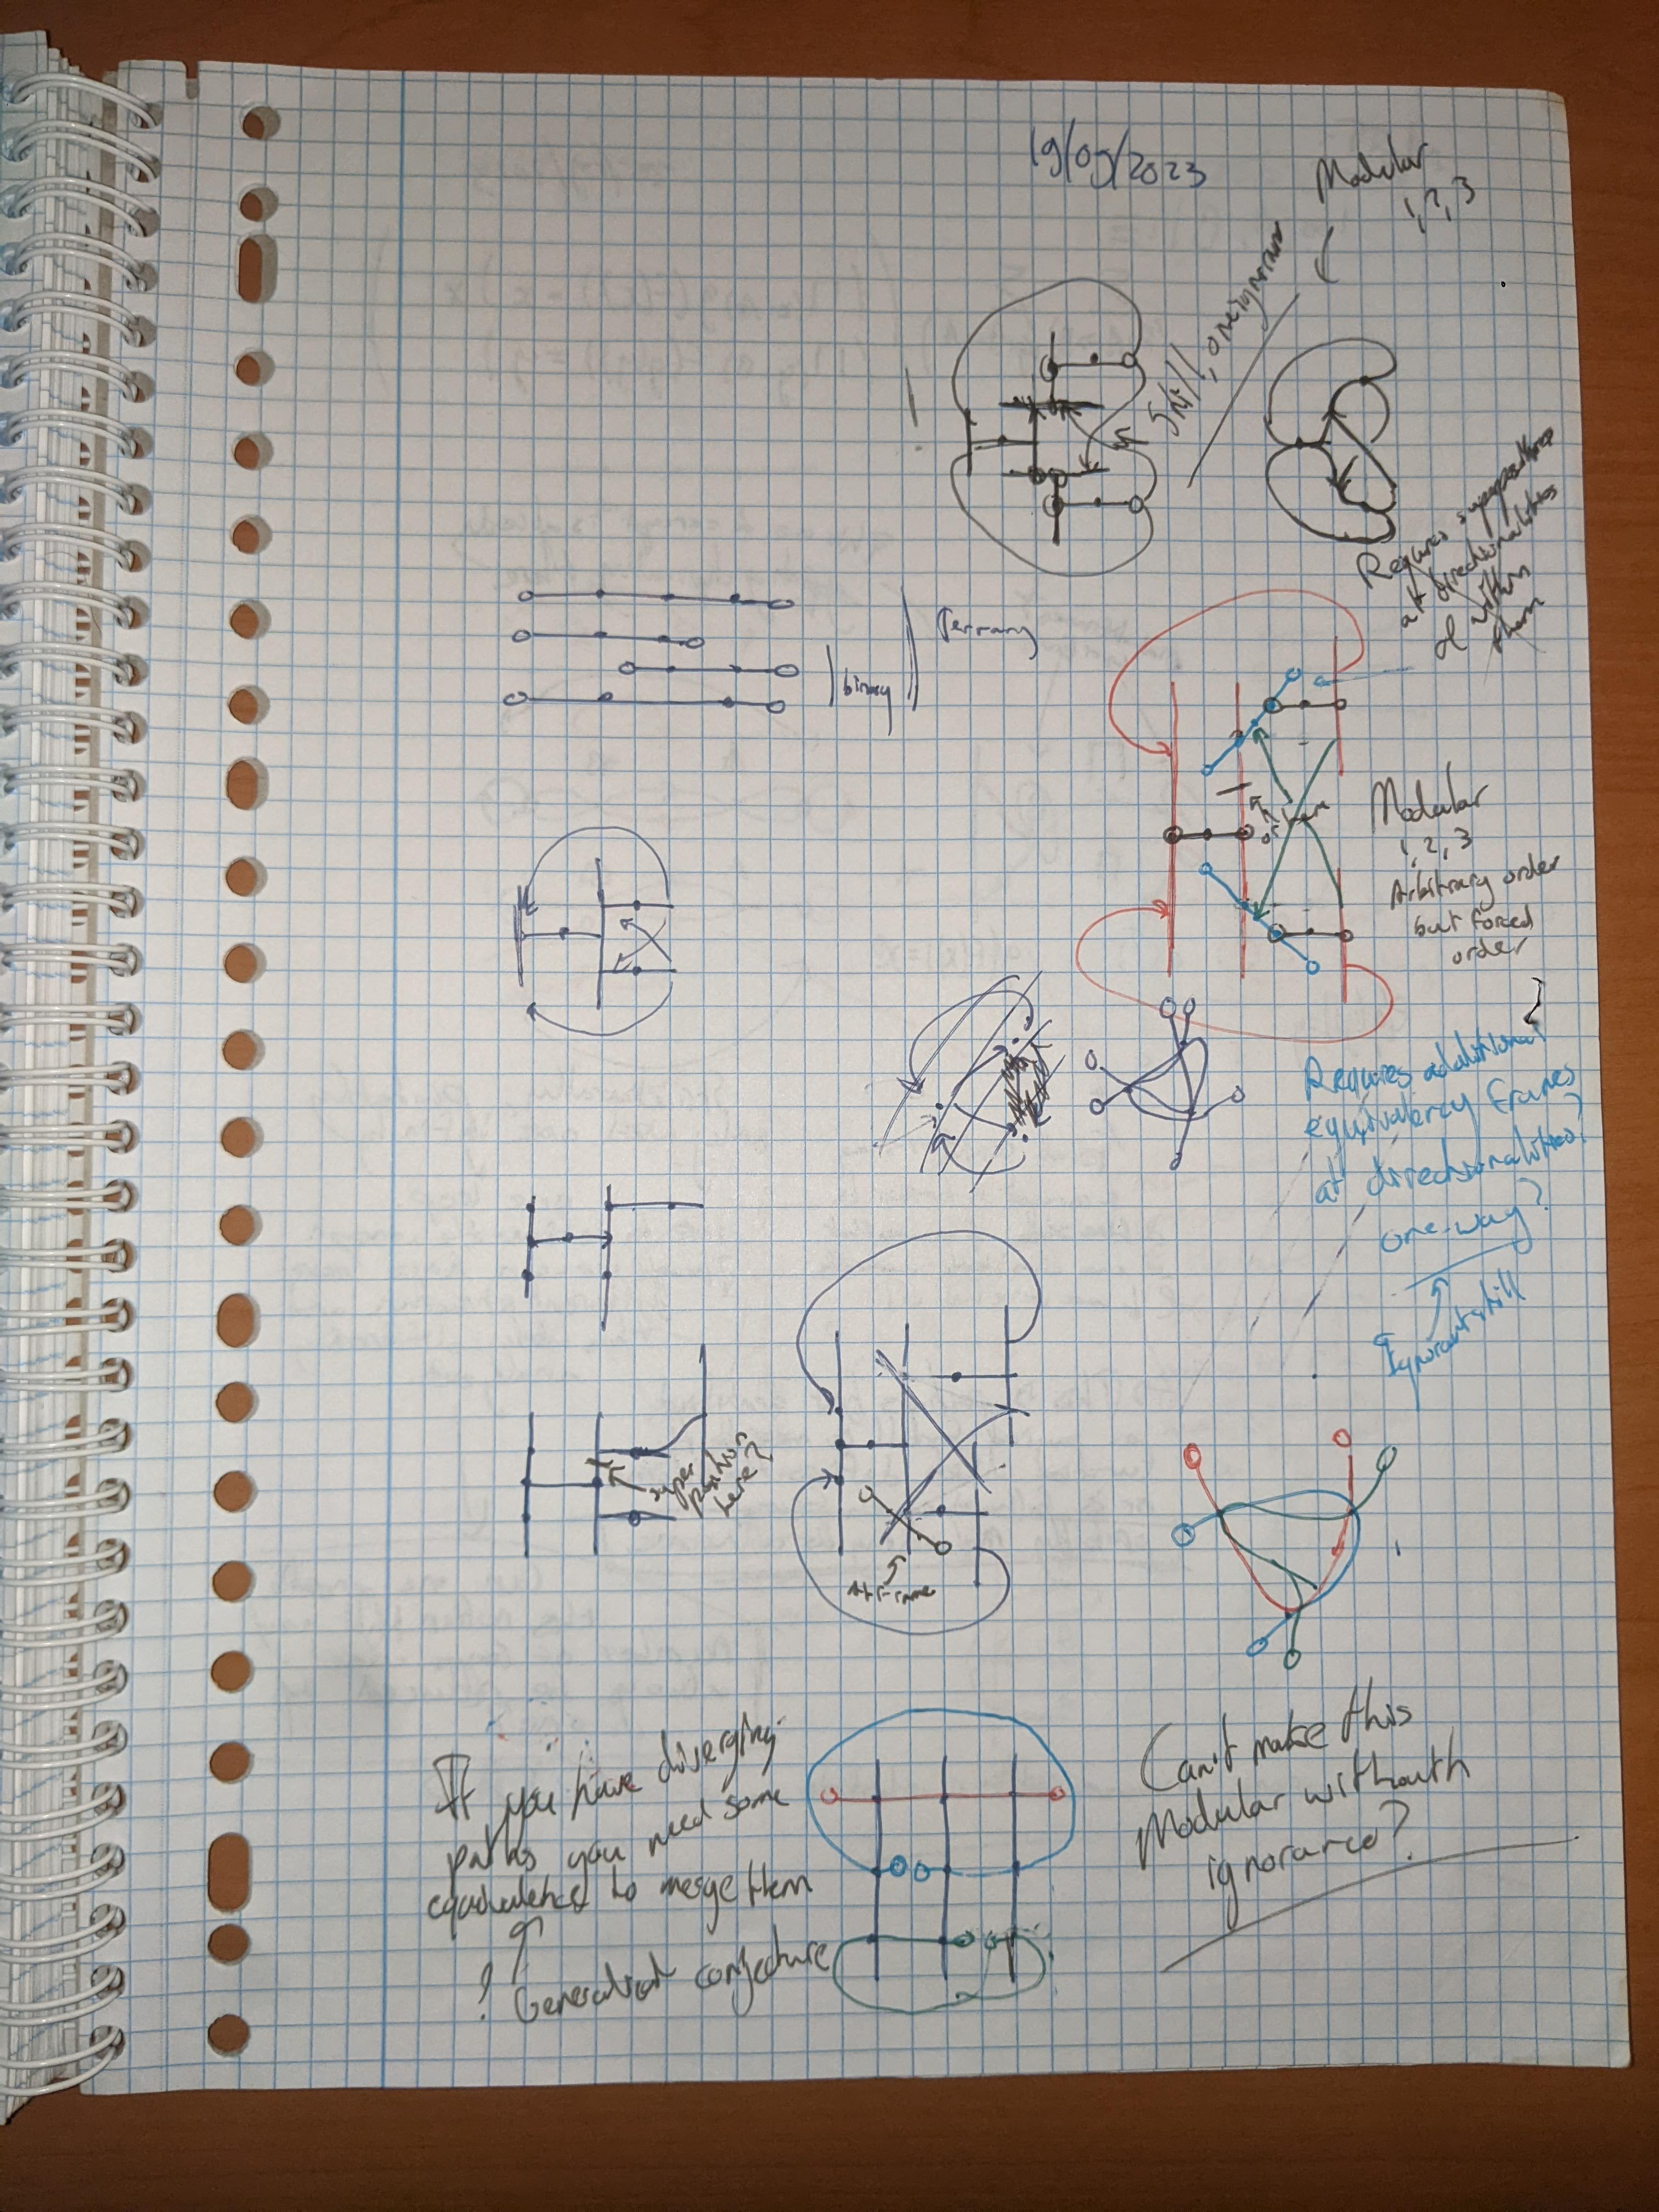 19/09/2023
Modular
1, 2, 3
Still, one ignorance
Requires superpositions
at directionalities
of within
them
Ternary
binary
or here
Modular
1, 2, 3
Arbitrary order
but forced
order
Requires additional
equivalency frames
at directionalities?
one-way?
Ignorant still
super
position
here?
At frame
If you have diverging
paths you need some
equivalence to merge them
? General conjecture
Can't make this
Modular withouth
ignorance?